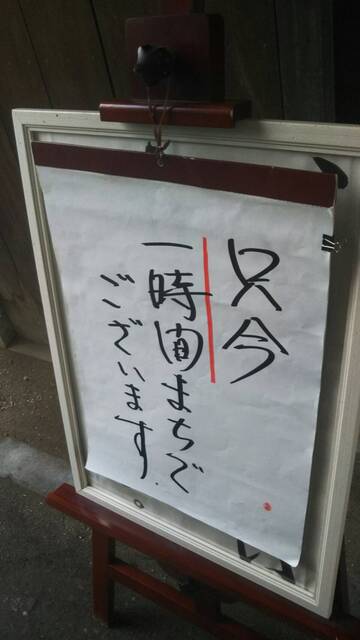 只今
一時間まちで
ございます.